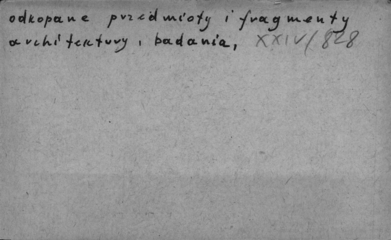 odkopane przedmioty i fragmenty
architektury, badania, XXIV/828